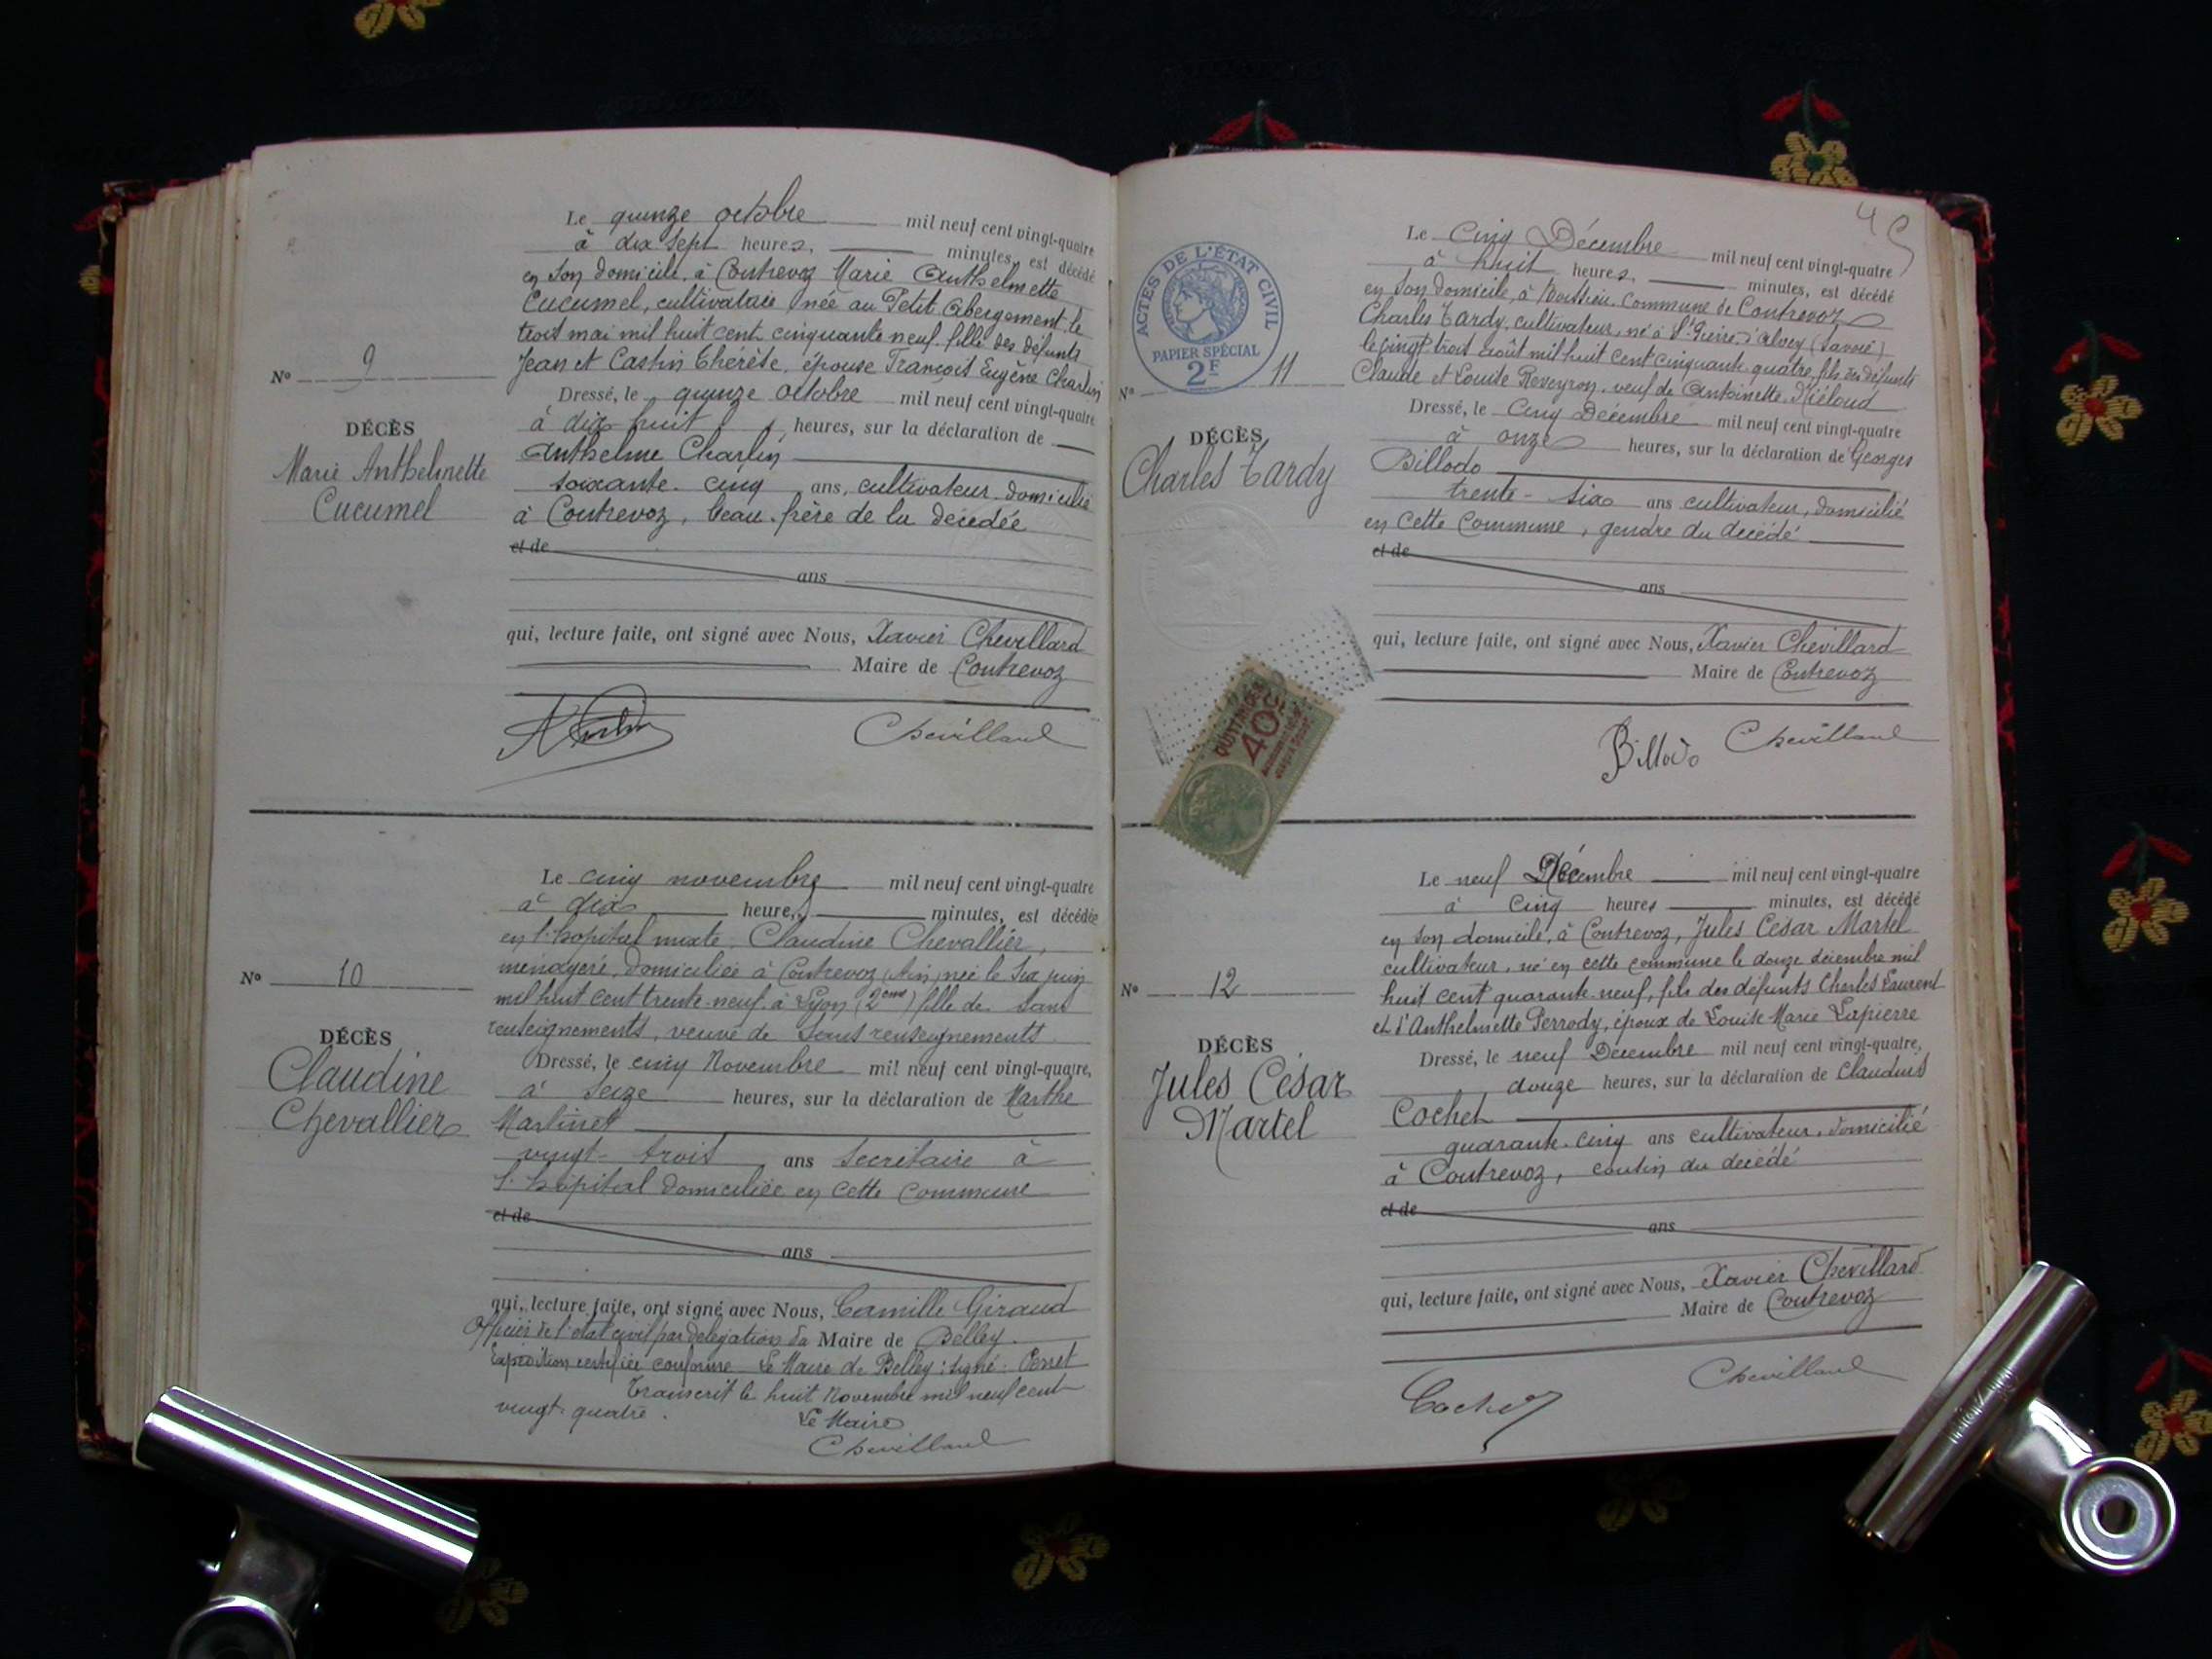 Le quinze octobre mil neuf cent vingt-quatre
à dix sept heures, minutes, est décédé
en son domicile, à Contrevoz Marie Anthelmette
Cucumel, cultivatrice née au Petit Abergement, le
trois mai mil huit cent cinquante neuf fille des défunts
Jean et Castin Thérèse, épouse François Eugène Charlin
Nº 9
DÉCÈS
Marie Anthelmette
Cucumel
Dressé, le quinze octobre mil neuf cent vingt-quatre
à dix huit heures, sur la déclaration de
Anthelme Charlin
soixante-cinq ans, cultivateur domicilié
à Contrevoz, beau-frère de la décédée
et de
ans
qui, lecture faite, ont signé avec Nous, Xavier Chevillard
Maire de Contrevoz
Chevillard
Le cinq novembre mil neuf cent vingt-quatre
à dix heures, minutes, est décédée
en l'hopital mixte, Claudine Chevallier,
ménagère, domiciliée à Contrevoz (Ain) née le six juin
mil huit cent trente-neuf à Lyon (2eme) fille de sans
renseignements, veuve de sans renseignements
Nº 10
DÉCÈS
Claudine
Chevallier
Dressé, le cinq Novembre mil neuf cent vingt-quatre,
à seize heures, sur la déclaration de Marthe
Martinet
vingt-trois ans secrétaire à
l'hôpital domiciliée en cette commune
et de
ans
qui, lecture faite, ont signé avec Nous, Camille Giraud
Officier de l'état civil par délégation du Maire de Belley.
Expédition certifiée conforme Le Maire de Belley : signé : Perret
Transcrit le huit Novembre mil neuf cent
vingt-quatre.
Le Maire
Chevillard
49
ACTES DE L'ÉTAT CIVIL
PAPIER SPÉCIAL
2F
Le cinq Décembre mil neuf cent vingt-quatre
à huit heures, minutes, est décédé
en son domicile, à Boissieu commune de Contrevoz
Charles Tardy, cultivateur, né à St Pierre d'Alvey (Savoie)
le vingt trois août mil huit cent cinquante quatre, fils des défunts
Claude et Louise Reveyron, veuf de Antoinette
Nº 11
DÉCÈS
Charles Tardy
Dressé, le cinq Décembre mil neuf cent vingt-quatre
à onze heures, sur la déclaration de Georges
Billodo
trente-six ans cultivateur, domicilié
en cette commune, gendre du décédé
et de
ans
qui, lecture faite, ont signé avec Nous, Xavier Chevillard
Maire de Contrevoz
QUITTANCES
40c
Billodo Chevillard
Le neuf Décembre mil neuf cent vingt-quatre
à cinq heures minutes, est décédé
en son domicile, à Contrevoz, Jules César Martel
cultivateur, né en cette commune le douze décembre mil
huit cent quarante-neuf, fils des défunts Charles Laurent
et d'Anthelmette Perrody, époux de Louise Marie Lapierre
Nº 12
DÉCÈS
Jules César
Martel
Dressé, le neuf Décembre mil neuf cent vingt-quatre,
douze heures, sur la déclaration de Claudius
Cochet
quarante-cinq ans cultivateur, domicilié
à Contrevoz, cousin du décédé
et de
ans
qui, lecture faite, ont signé avec Nous, Xavier Chevillard
Maire de Contrevoz
Cochet Chevillard